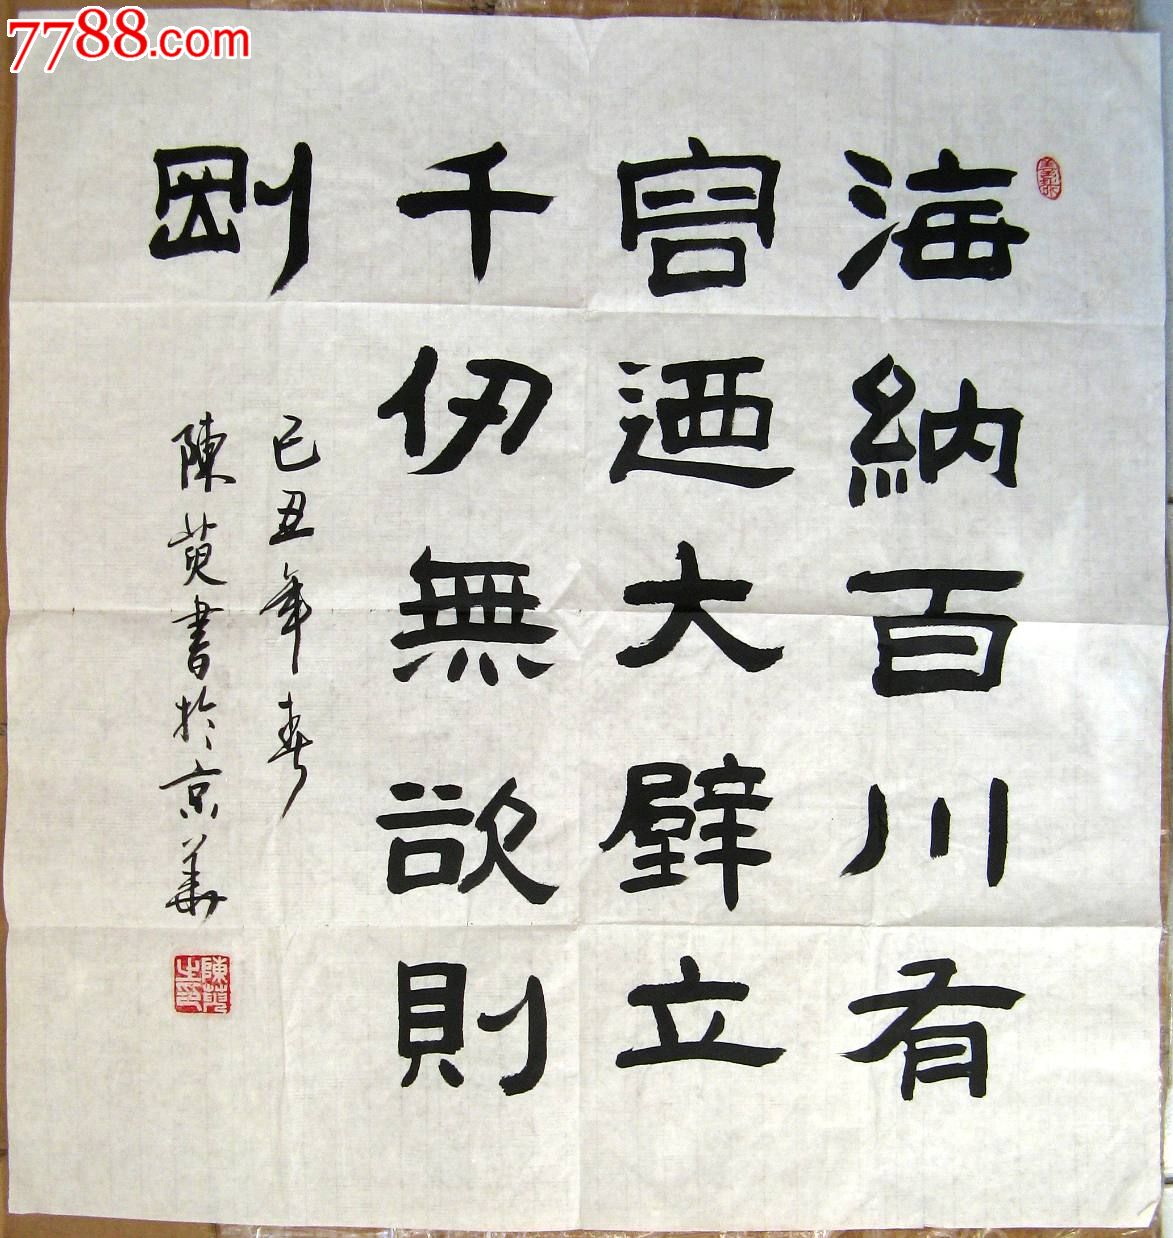 7788.com
海納百川有
容迺大壁立
千仞無欲則
剛
己丑年春
陳萸書於京華